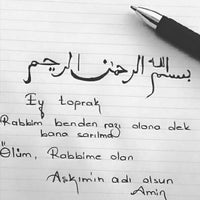 بسم الله الرحمن الرحيم
Ey toprak
Rabbim benden razı olana dek
bana sarılma
Ölüm, Rabbime olan
Aşkımın adı olsun
Amin